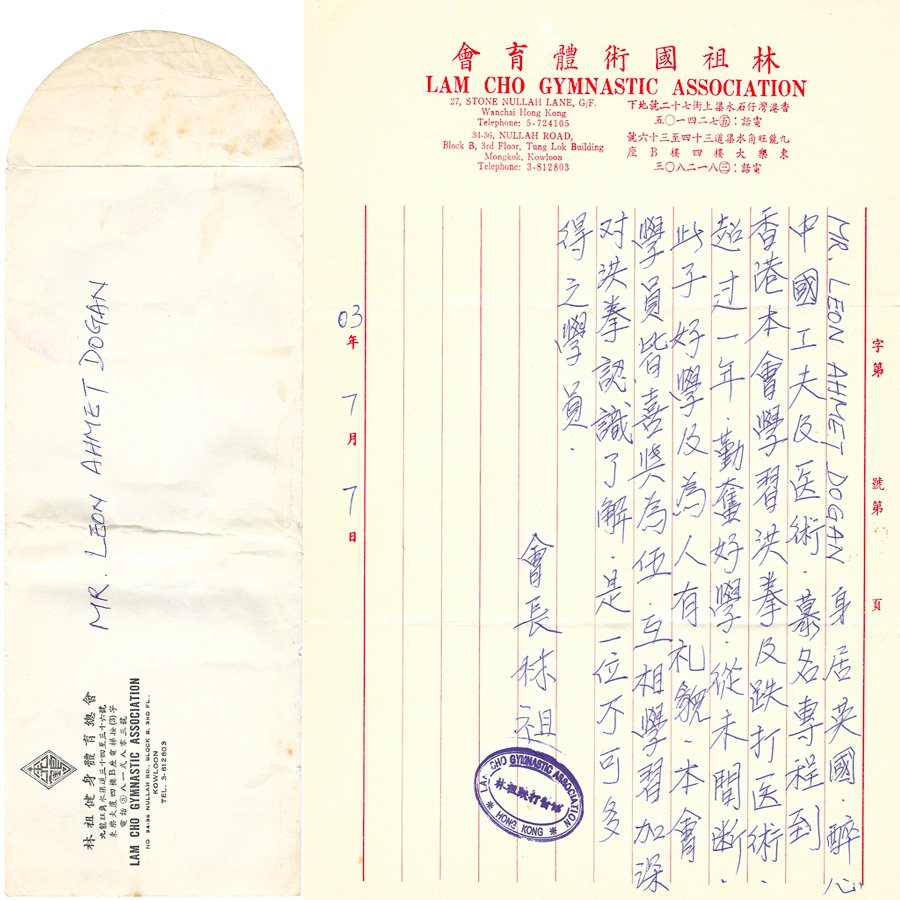 MR. LEON AHMET DOGAN
林祖健身體育總會
九龍旺角水渠道三十四至三十六號
東樂大廈四樓B座電梯按(3)字
電話③八一二八零三號
LAM CHO GYMNASTIC ASSOCIATION
NO 34-36 NULLAH RD., BLOCK B, 3RD FL.,
KOWLOON
TEL. 3-812803
會育體術國祖林
LAM CHO GYMNASTIC ASSOCIATION
27, STONE NULLAH LANE, G/F.
Wanchai Hong Kong
Telephone: 5-724105
34-36, NULLAH ROAD,
Block B, 3rd Floor, Tung Lok Building
Mongkok, Kowloon
Telephone: 3-812803
下地號七十二街上渠水石仔灣港香
五〇一四二七㊄:話電
號六十三至四十三道渠水角旺龍九
座B樓四樓大樂東
三〇八二一八㊂:話電
字第 號第 頁
MR. LEON AHMET DOGAN 身居英國·醉心
中國工夫及医術·慕名專程到
香港本會學習洪拳及跌打医術·
超过一年·勤奮好學·從未間断·
此子好學及為人有礼貌·本會
學員皆喜與為伍·互相學習加深
对洪拳認識了解·是一位不可多
得之學員·
會長林祖
03年7月7日
LAM CHO GYMNASTIC ASSOCIATION
林祖跌打醫館
* HONG KONG *